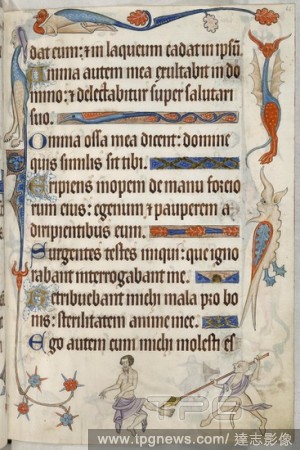 dat eum: ⁊ in laqueum cadat in ipsū.
Anima autem mea exultabit in do
mino: ⁊ delectabitur super salutari
suo.
Omnia ossa mea dicent: domine
quis similis sit tibi.
Eripiens inopem de manu forcio
rum eius: egenum ⁊ pauperem a
diripientibus eum.
Surgentes testes iniqui: que igno
rabant interrogabant me.
Retribuebant michi mala pro bo
nis: sterilitatem anime mee.
Ego autem cum michi molesti es
TPG
www.tpgnews.com/ 達志影像